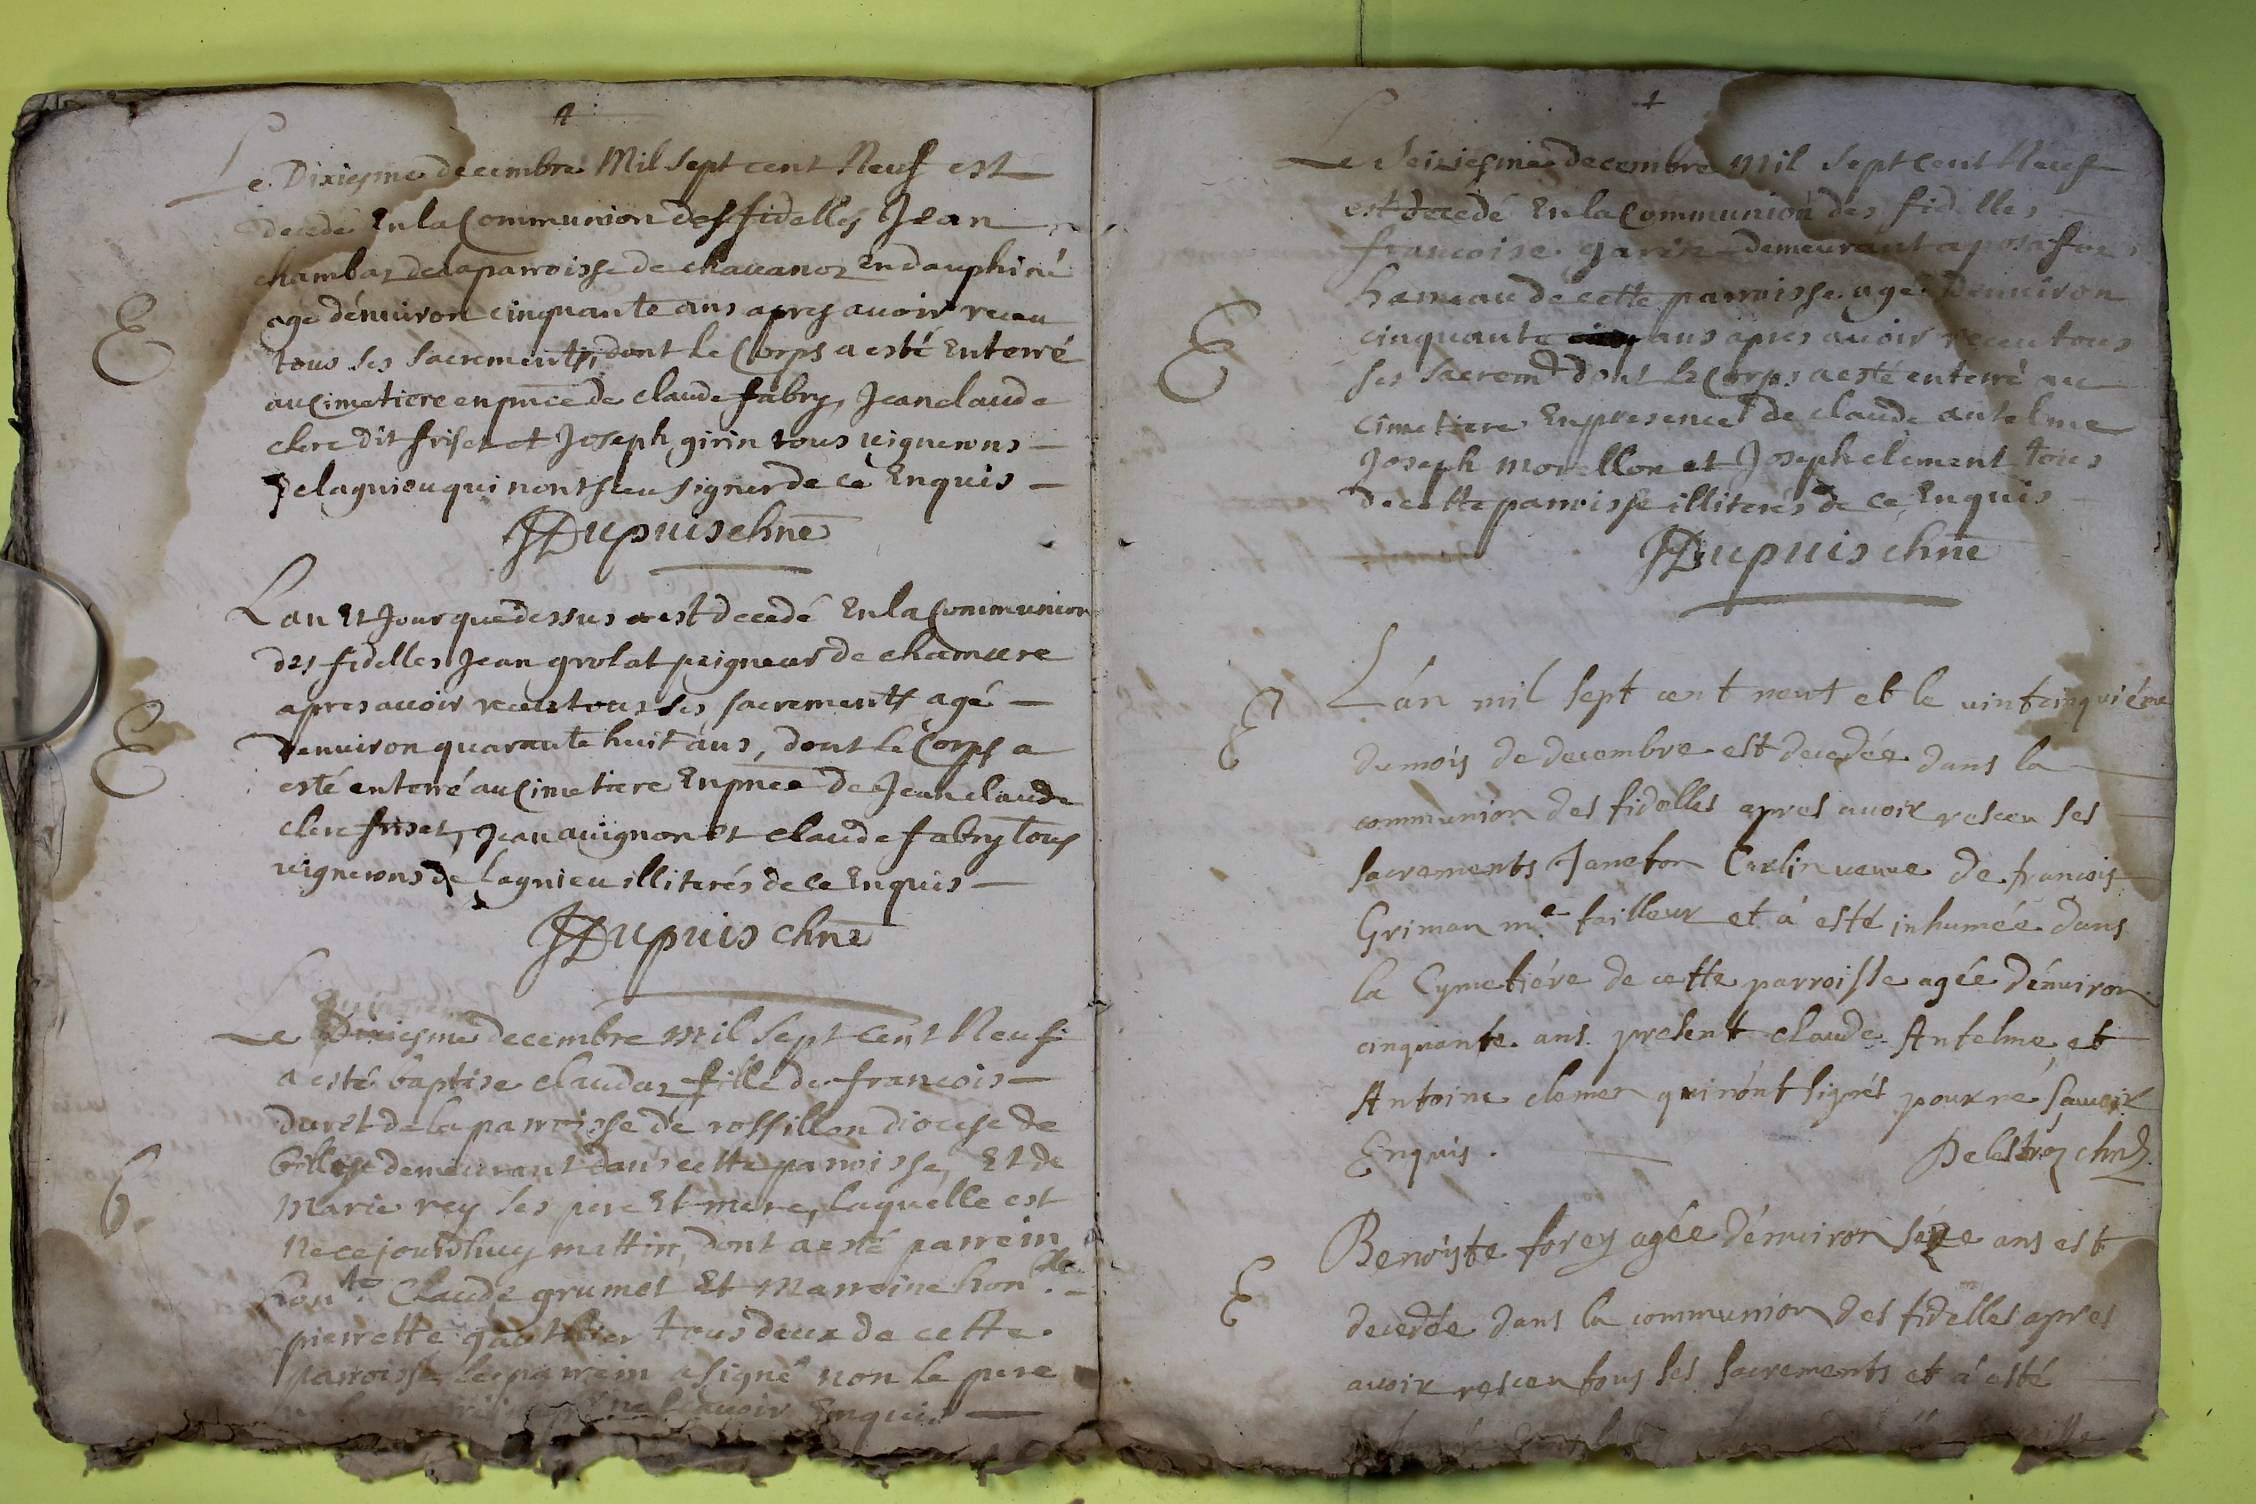 Le Dixiesme decembre Mil sept cent Neuf est
decedé En la Communion des fidelles Jean
chambaz de la parroisse de chavanoz en dauphiné
agé d'énuiron cinquante ans apres auoir receu
tous ses sacrements, dont le Corps a esté Enterré
au Cimetiere en pnce de claude fabry, Jean claude
clerc dit friset et Joseph girin tous uignerons
De lagnieu qui nont sceu signer de ce Enquis
JDupuis chne
E
Lan Et Jour que dessus est decedé En la Communion
des fidelles Jean grolat peigneur de chamure
apres auoir receu tous ses sacrements agé
denuiron quarante huit ans, dont le Corps a
esté enterré au Cimetiere En pnce de Jean claude
clerc friset, Jean auignon et claude fabry tous
uignerons de Lagnieu illiterés de ce Enquis
JDupuis chne
E
Le quinziem decembre mil sept cent Neuf
a esté baptise claudaz fille de francois
duret de la parroisse de rossillon diocese de
belley demeurant dans cette parroisse, Et de
Marie rey ses pere Et mere, laquelle est
Nee ce jourdhuy mattin, dont a esté parrein
hon.te Claude grumet Et Marroine hon.ble
pierrette gauthier tous deux de cette
parroisse le parrein a signé non le pere
ne scavoir Enquis
b.
Le Seiziesme decembre mil sept cent Neuf
est decedé En la Communion des fidelles
francoise garin demeurant a posafor
hameau de cette parroisse agé Denuiron
cinquante ans apres auoir receu tous
ses sacremts dont le Corps a esté enterré au
cimetiere En presence de claude antelme
Joseph morellon et Joseph clement tous
de cette parroisse illiterés de ce Enquis
JDupuis chne
E
Lán mil sept cent neuf et le uintcinquiéme
du mois de decembre est decedée dans la
communion des fidelles apres auoir resceu ses
sacrements Janeton Carlin ueuue de francois
Griman me tailleur et á esté inhumée dans
la Cymetiére de cette parroisse agée d'énuiron
cinquante ans present claude Antelme et
Antoine clemen qui n'ont signés pour ne scauoir
Enquis.
E
Benoiste forey agée d'énuiron séze ans est
decedée dans la communion des fidelles apres
auoir resceu tous ses sacrements et á esté
E